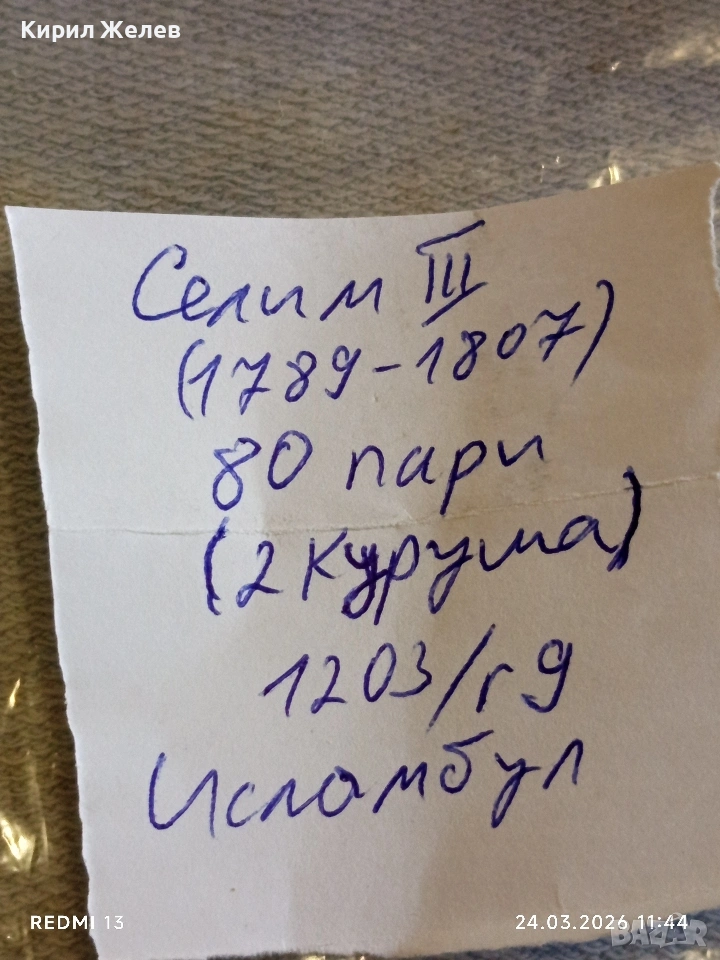 Кирил Желев
Селим III
(1789-1807)
80 пари
(2 Куруша)
1203/г 9
Исламбул
REDMI 13
24.03.2026 11:44
BAZAR